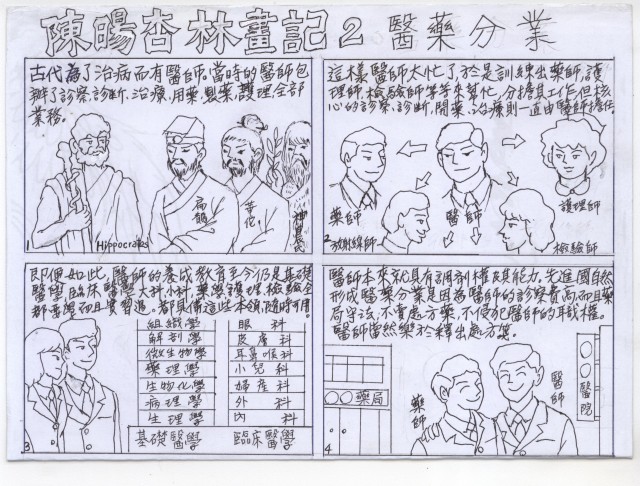 陳暘杏林畫記2 醫藥分業
古代為了治病而有醫師。當時的醫師包
辦了診察,診斷,治療,用藥,製藥,護理,全部
業務。
Hippocrates
扁鵲
華佗
神農氏
1
這樣醫師太忙了,於是訓練出藥師,護
理師,檢驗師等等來幫忙,分擔其工作,但核
心的診察,診斷,開藥,治療則一直由醫師擔任。
藥師
醫師
護理師
放射線師
檢驗師
2
即便如此,醫師的養成教育至今仍是基礎
醫學,臨床醫學,大科,小科,藥學,護理,檢驗,全
都要學而且要實習進。都具備這些本領,隨時可用。
組織學 眼科
解剖學 皮膚科
微生物學 耳鼻喉科
藥理學 小兒科
生物化學 婦產科
病理學 外科
生理學 內科
基礎醫學 臨床醫學
3
醫師本來就具有調劑權及其能力,先進國自然
形成醫藥分業是因為醫師的診察費高而且藥
局守法,不賣處方藥,不侵犯醫師的職權。
醫師當然樂於釋出處方箋。
〇〇藥局
藥師
醫師
〇〇醫院
4